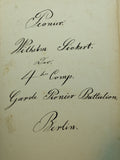 Pionier.
Wilhelm
Der
4te Comp.
Garde Pionier Battallion
Berlin.